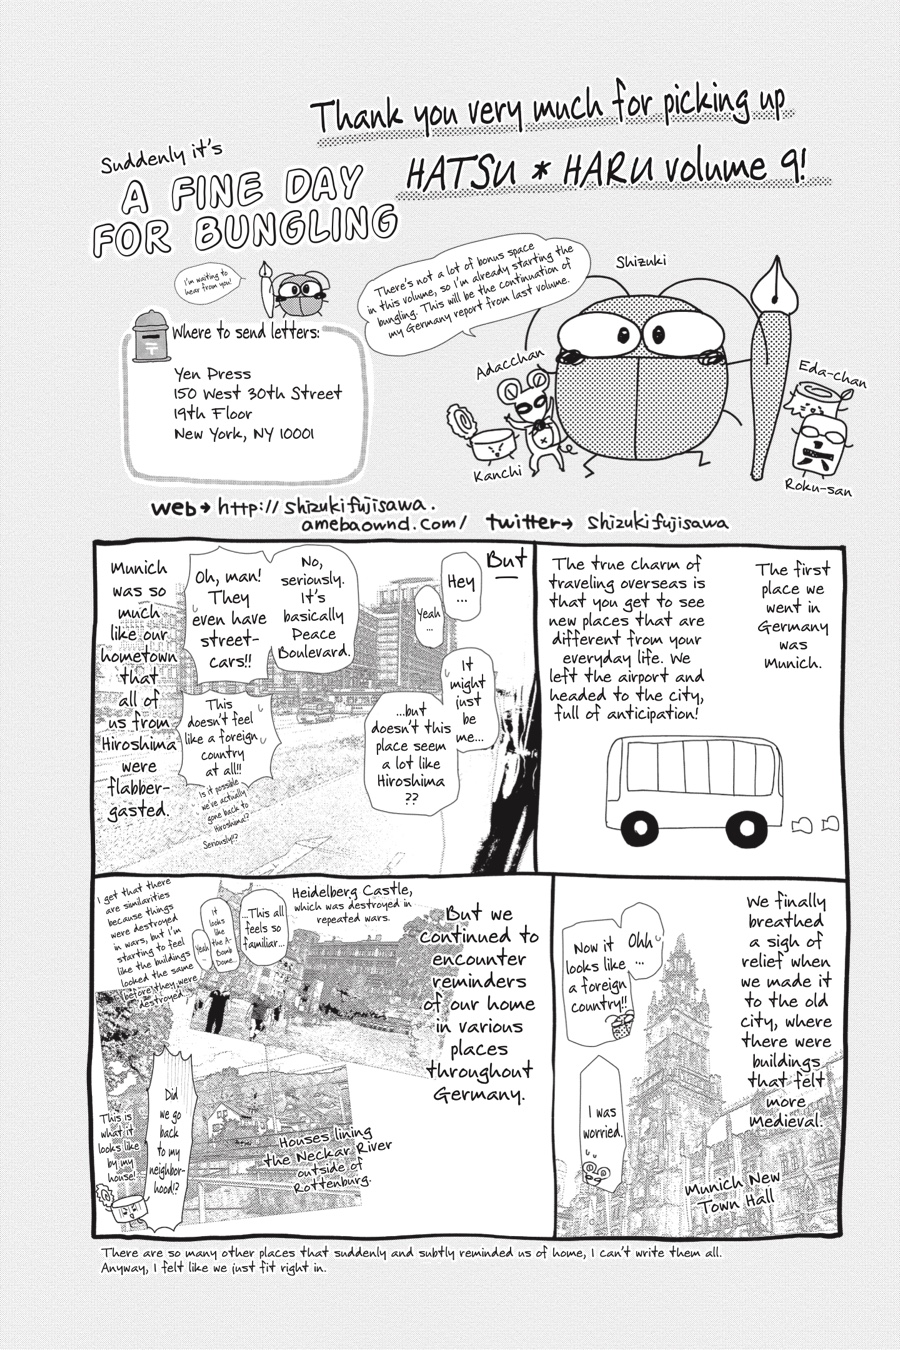 Thank you very much for picking up
HATSU * HARU volume 9!
Suddenly it's
A FINE DAY
FOR BUNGLING
I'm waiting to
hear from you!
There's not a lot of bonus space
in this volume, so I'm already starting the
bungling. This will be the continuation of
my Germany report from last volume.
Shizuki
Adacchan
Kanchi
Eda-chan
Roku-san
Where to send letters:
Yen Press
150 West 30th Street
19th Floor
New York, NY 10001
web→ http://shizukifujisawa.
amebaownd.com/ twitter→ shizukifujisawa
The first
place we
went in
Germany
was
Munich.
The true charm of
traveling overseas is
that you get to see
new places that are
different from your
everyday life. We
left the airport and
headed to the city,
full of anticipation!
But
Hey
...
Yeah
...
It
might
just
be
me...
...but
doesn't this
place seem
a lot like
Hiroshima
??
No,
seriously.
It's
basically
Peace
Boulevard.
Oh, man!
They
even have
street-
cars!!
This
doesn't feel
like a foreign
country
at all!!
Is it possible
we've actually
gone back to
Hiroshima!?
Seriously!?
Munich
was so
much
like our
hometown
that
all of
us from
Hiroshima
were
flabber-
gasted.
We finally
breathed
a sigh of
relief when
we made it
to the old
city, where
there were
buildings
that felt
more
Medieval.
Ohh
...
Now it
looks like
a foreign
country!!
I was
worried.
Munich New
Town Hall
But we
continued to
encounter
reminders
of our home
in various
places
throughout
Germany.
Heidelberg Castle,
which was destroyed in
repeated wars.
...This all
feels so
familiar...
It
looks
like
the A-
Bomb
Dome...
Yeah
...
I get that there
are similarities
because things
were destroyed
in wars, but I'm
starting to feel
like the buildings
looked the same
before they were
destroyed.
Houses lining
the Neckar River
outside of
Rottenburg.
Did
we go
back
to my
neighbor-
hood!?
This is
what it
looks like
by my
house!
There are so many other places that suddenly and subtly reminded us of home, I can't write them all.
Anyway, I felt like we just fit right in.